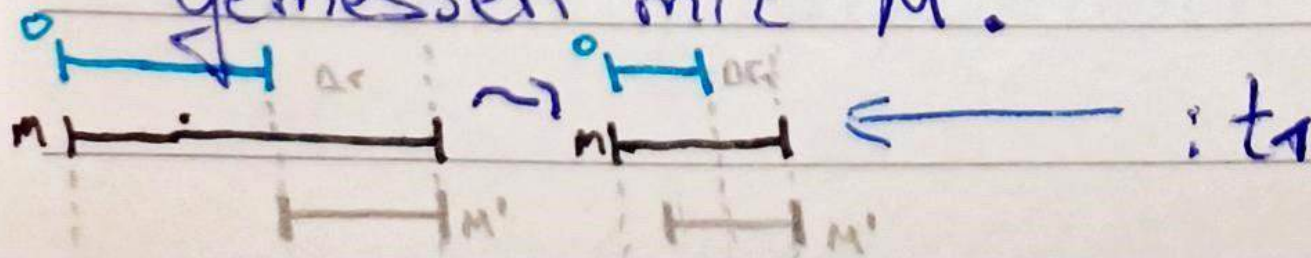 gemessen mit M.
O Δr ~> O Δr
M M ← : t₁
M' M'